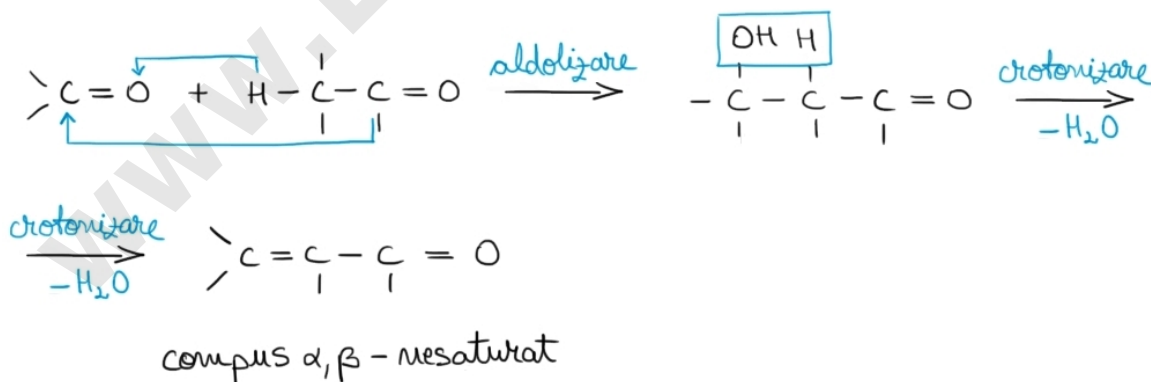 OH H
C = O + H – C – C = O aldolizare – C – C – C = O crotonizare
–H₂O
crotonizare C = C – C = O
–H₂O
compus α, β – nesaturat
www.